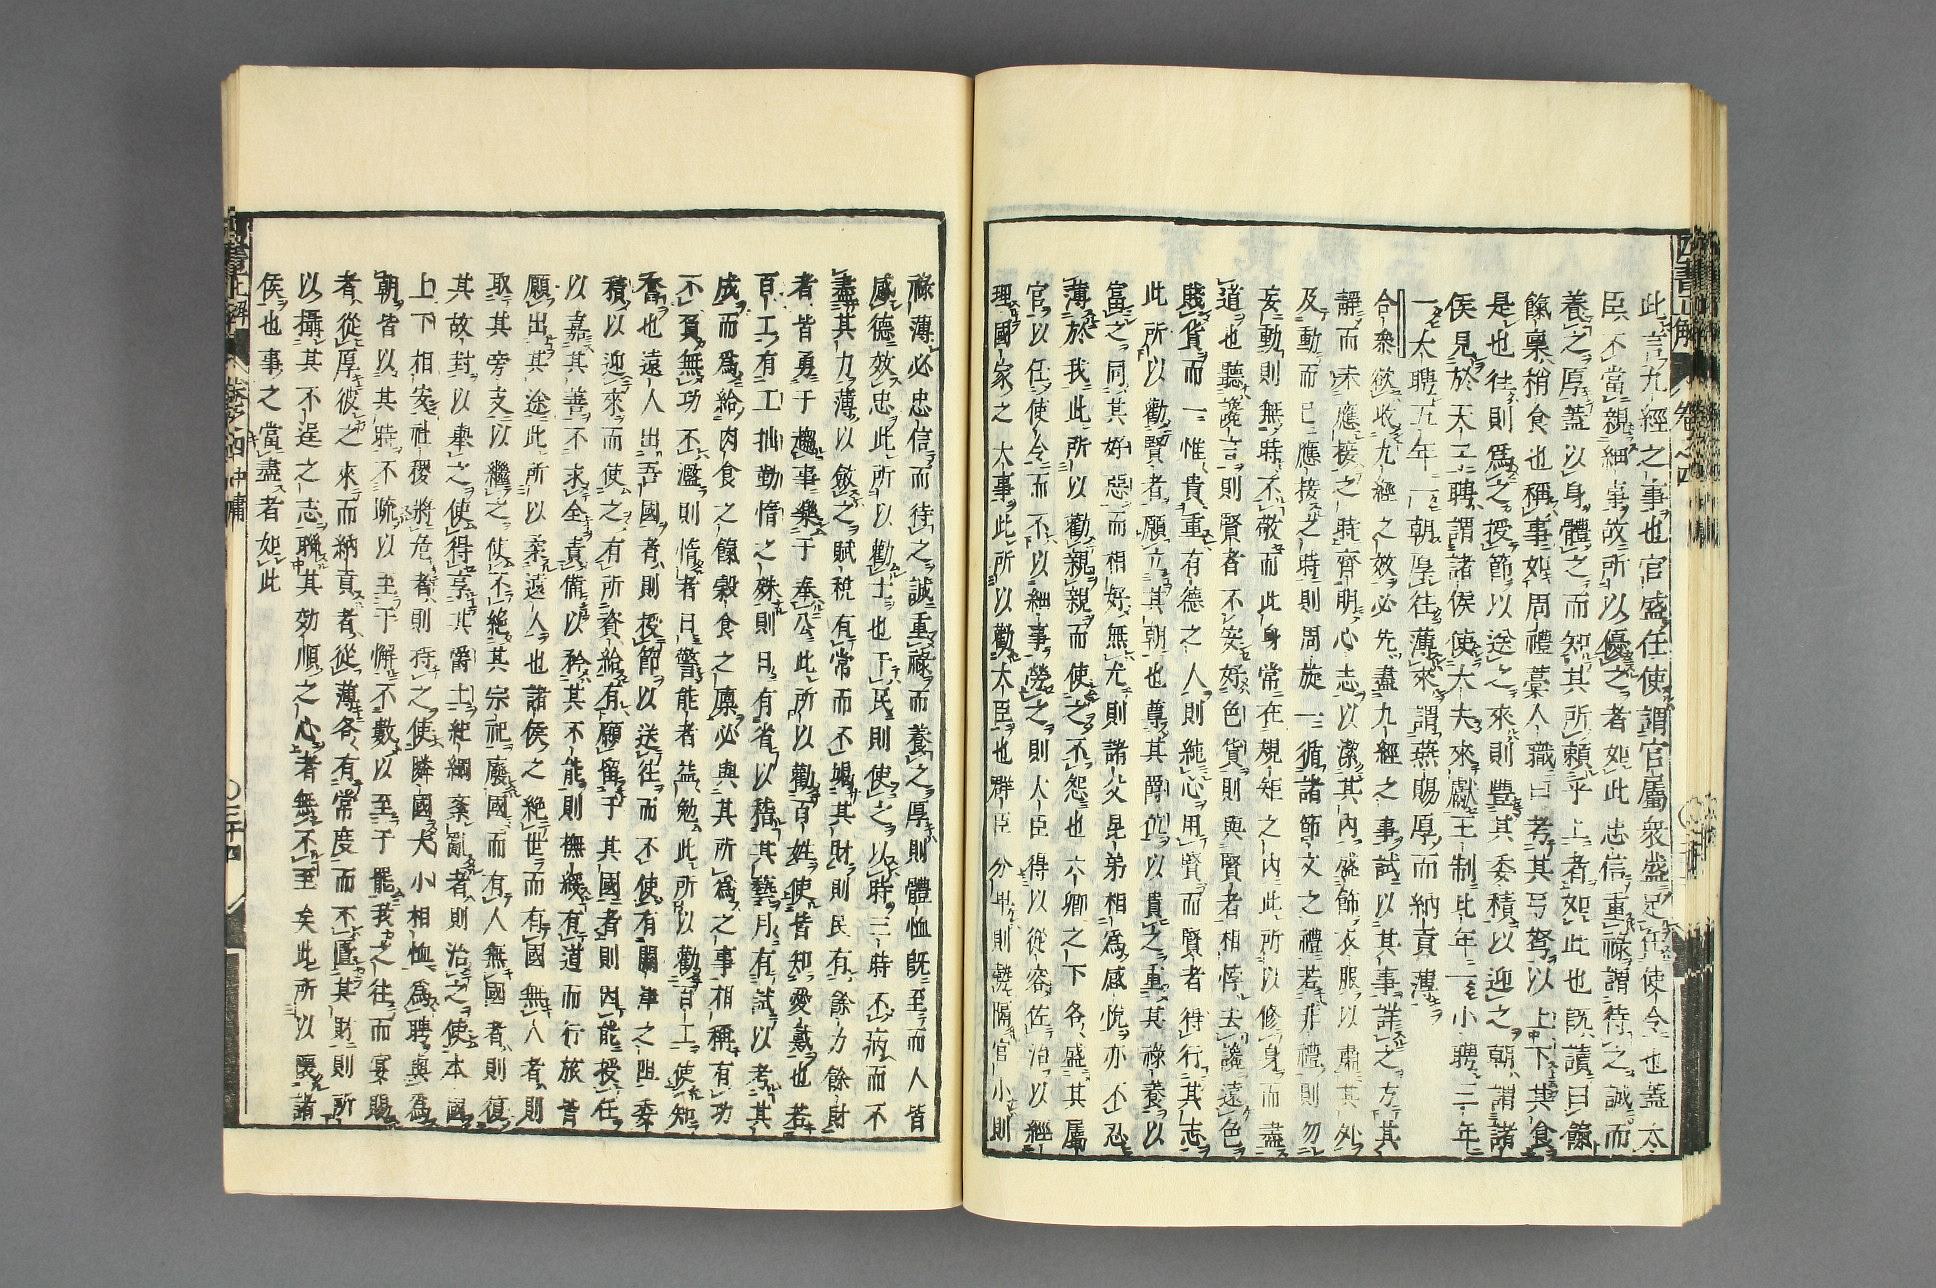 此言九經之事也官盛任使謂官屬衆盛足任使令也蓋大
臣不當親細事故所以優之者如此忠信重祿謂待之誠而
養之厚蓋以身體之而知其所賴乎上者如此也既讀曰餼
餼稟稍食也稱事如周禮稾人職曰考其弓弩以上下其食
是也往則爲之授節以送之來則豐其委積以迎之朝謂諸
侯見於天子聘謂諸侯使大夫來獻王制比年一小聘三年
一大聘五年一朝厚往薄來謂燕賜厚而納貢薄
合衆欲收九經之效必先盡九經之事試以其事詳之方其
靜而未應接之時齊明心志以潔其內盛飾衣服以肅其外
及動而已應接之時則周旋一循諸節文之禮若非禮則勿
妄動則無時不敬而此身常在規矩之内此所以修身而盡
道也聽讒言則賢者不安好色貨則與賢者相悖去讒遠色
賤貨而一惟貴重有德之人則純心用賢而賢者得行其志
此所以勸賢者願立其朝也尊其爵位以貴之重其祿養以
富之同其好惡而相好無尤則諸父昆弟相爲感悅亦不忍
薄於我此所以勸親親而使之不怨也六卿之下各盛其屬
官以任使令而不以細事勞之則大臣得以從容佐治以經
理國家之大事此所以勸大臣也群臣分卑則勢隔官小則
祿薄必忠信而待之誠重祿而養之厚則體恤既至而人皆
感德效忠此所以勸士也下民則使之以時三時不病而不
盡其力薄以斂之賦稅有常而不竭其財則民有餘力餘財
者皆勇于趨事樂于奉公此所以勸百姓使皆知愛戴也若
百工有工拙勤惰之殊則日有省以稽其藝月有試以考其
成而爲給肉食之餼穀食之廩必與其所爲之事相稱有功
不負無功不濫則惰者日警能者益勉此所以勸百工使知
奮也遠人出吾國者則授節以送往而不使有關津之阻委
積以迎來而使之有所資給有願留于其國者則因能授任
以嘉其善不求全責備以矜其不能則撫綏有道而行旅皆
願出其途此所以柔遠人也諸侯之絕世而有國無人者則
取其旁支以繼之使不絕其宗祀廢國而有人無國者則復
其故封以舉之使得享其爵土紀綱紊亂者則治之使本國
上下相安社稷將危者則持之使隣國大小相恤爲聘與爲
朝皆以其時不疏以至于懈不數以至于罷我之往而宴賜
者從厚彼之來而納貢者從薄各有常度而不匱其財則所
以攝其不逞之志聯其効順之心者無不至矣此所以懷諸
侯也事之當盡者如此
四書正解 卷之四
四書正解 卷之四 中庸 〇三十四